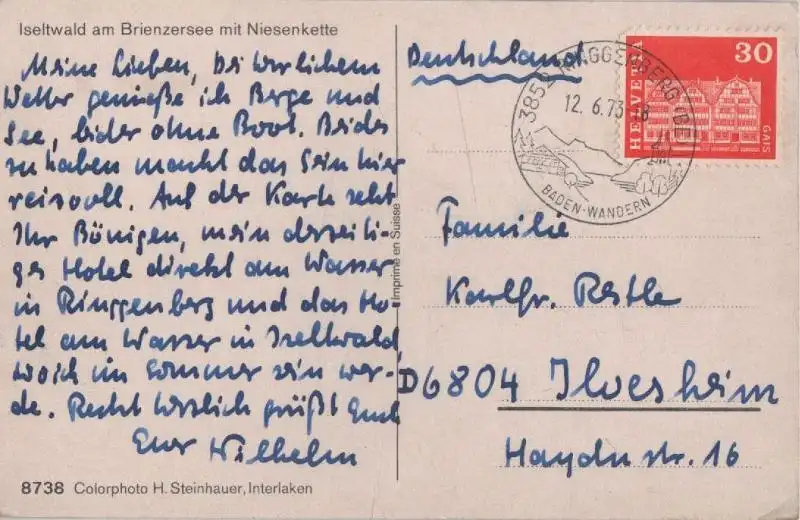 Iseltwald am Brienzersee mit Niesenkette
Meine Lieben, bei herrlichem
Wetter genieße ich Berge und
See, leider ohne Boot. Beides
zu haben macht das Sein hier
reizvoll. Auf der Karte seht
Ihr Bönigen, mein derzeiti-
ges Hotel direkt am Wasser
in Ringgenberg und das Ho-
tel am Wasser in Iseltwald,
wo ich im Sommer sein wer-
de. Recht herzlich grüßt Euch
Euer Wilhelm
8738 Colorphoto H. Steinhauer, Interlaken
Imprimé en Suisse
Deutschland
3852 RINGGENBERG (BE)
12.6.73-18
BADEN-WANDERN
HELVETIA
30
GAIS
Familie
Karlfr. Restle
D6804 Ilvesheim
Haydnstr. 16